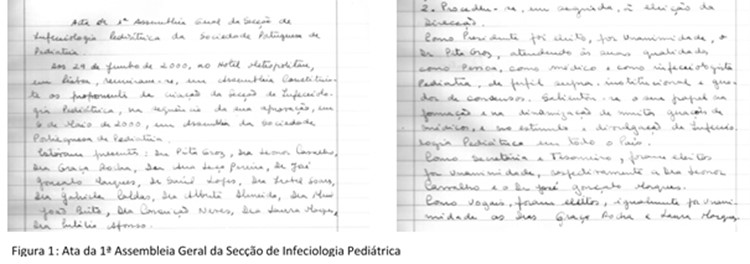 Ata da 1ª Assembleia Geral da Secção de
Infeciologia Pediátrica da Sociedade Portuguesa de
Pediatria
Aos 29 de Junho de 2000, ao Hotel Metropolitan,
em Lisboa, reuniram-se, em Assembleia Constituin-
te os proponentes da criação da Secção de Infeciolo-
gia Pediátrica, na sequência da sua aprovação, em
6 de Maio de 2000, em Assembleia da Sociedade
Portuguesa de Pediatria.
Estiveram presentes: Dr Pita Groz, Dra Leonor Carvalho,
Dra Graça Rocha, Dra Ana Leça Pereira, Dr José
Gonçalo Marques, Dr Lopes, Dra Isabel
Dra Gabriela Caldas, Dra Alberto Almeida, Dra
João Brito, Dra Conceição Neves, Dra Laura Marques,
Dra Afonso.
2. Procedeu-se, em seguida, à eleição da
Direcção.
Como Presidente foi eleito, por unanimidade, o
Dr Pita Groz, atendendo às suas qualidades
como Pessoa, como médico e como infeciologista
Pediatra, de perfil supra-institucional e gera-
dor de consensos. Salientou-se o seu papel na
formação e na dinamização de muitas gerações de
médicos, e no estímulo e divulgação da Infecio-
logia Pediátrica em todo o País.
Como Secretária e Tesoureiro, foram eleitos
por unanimidade, respectivamente a Dra Leonor
Carvalho e o Dr José Gonçalo Marques.
Como vogais, foram eleitos, igualmente por unani-
midade as Dras Graça Rocha e Laura Marques
Figura 1: Ata da 1ª Assembleia Geral da Secção de Infeciologia Pediátrica